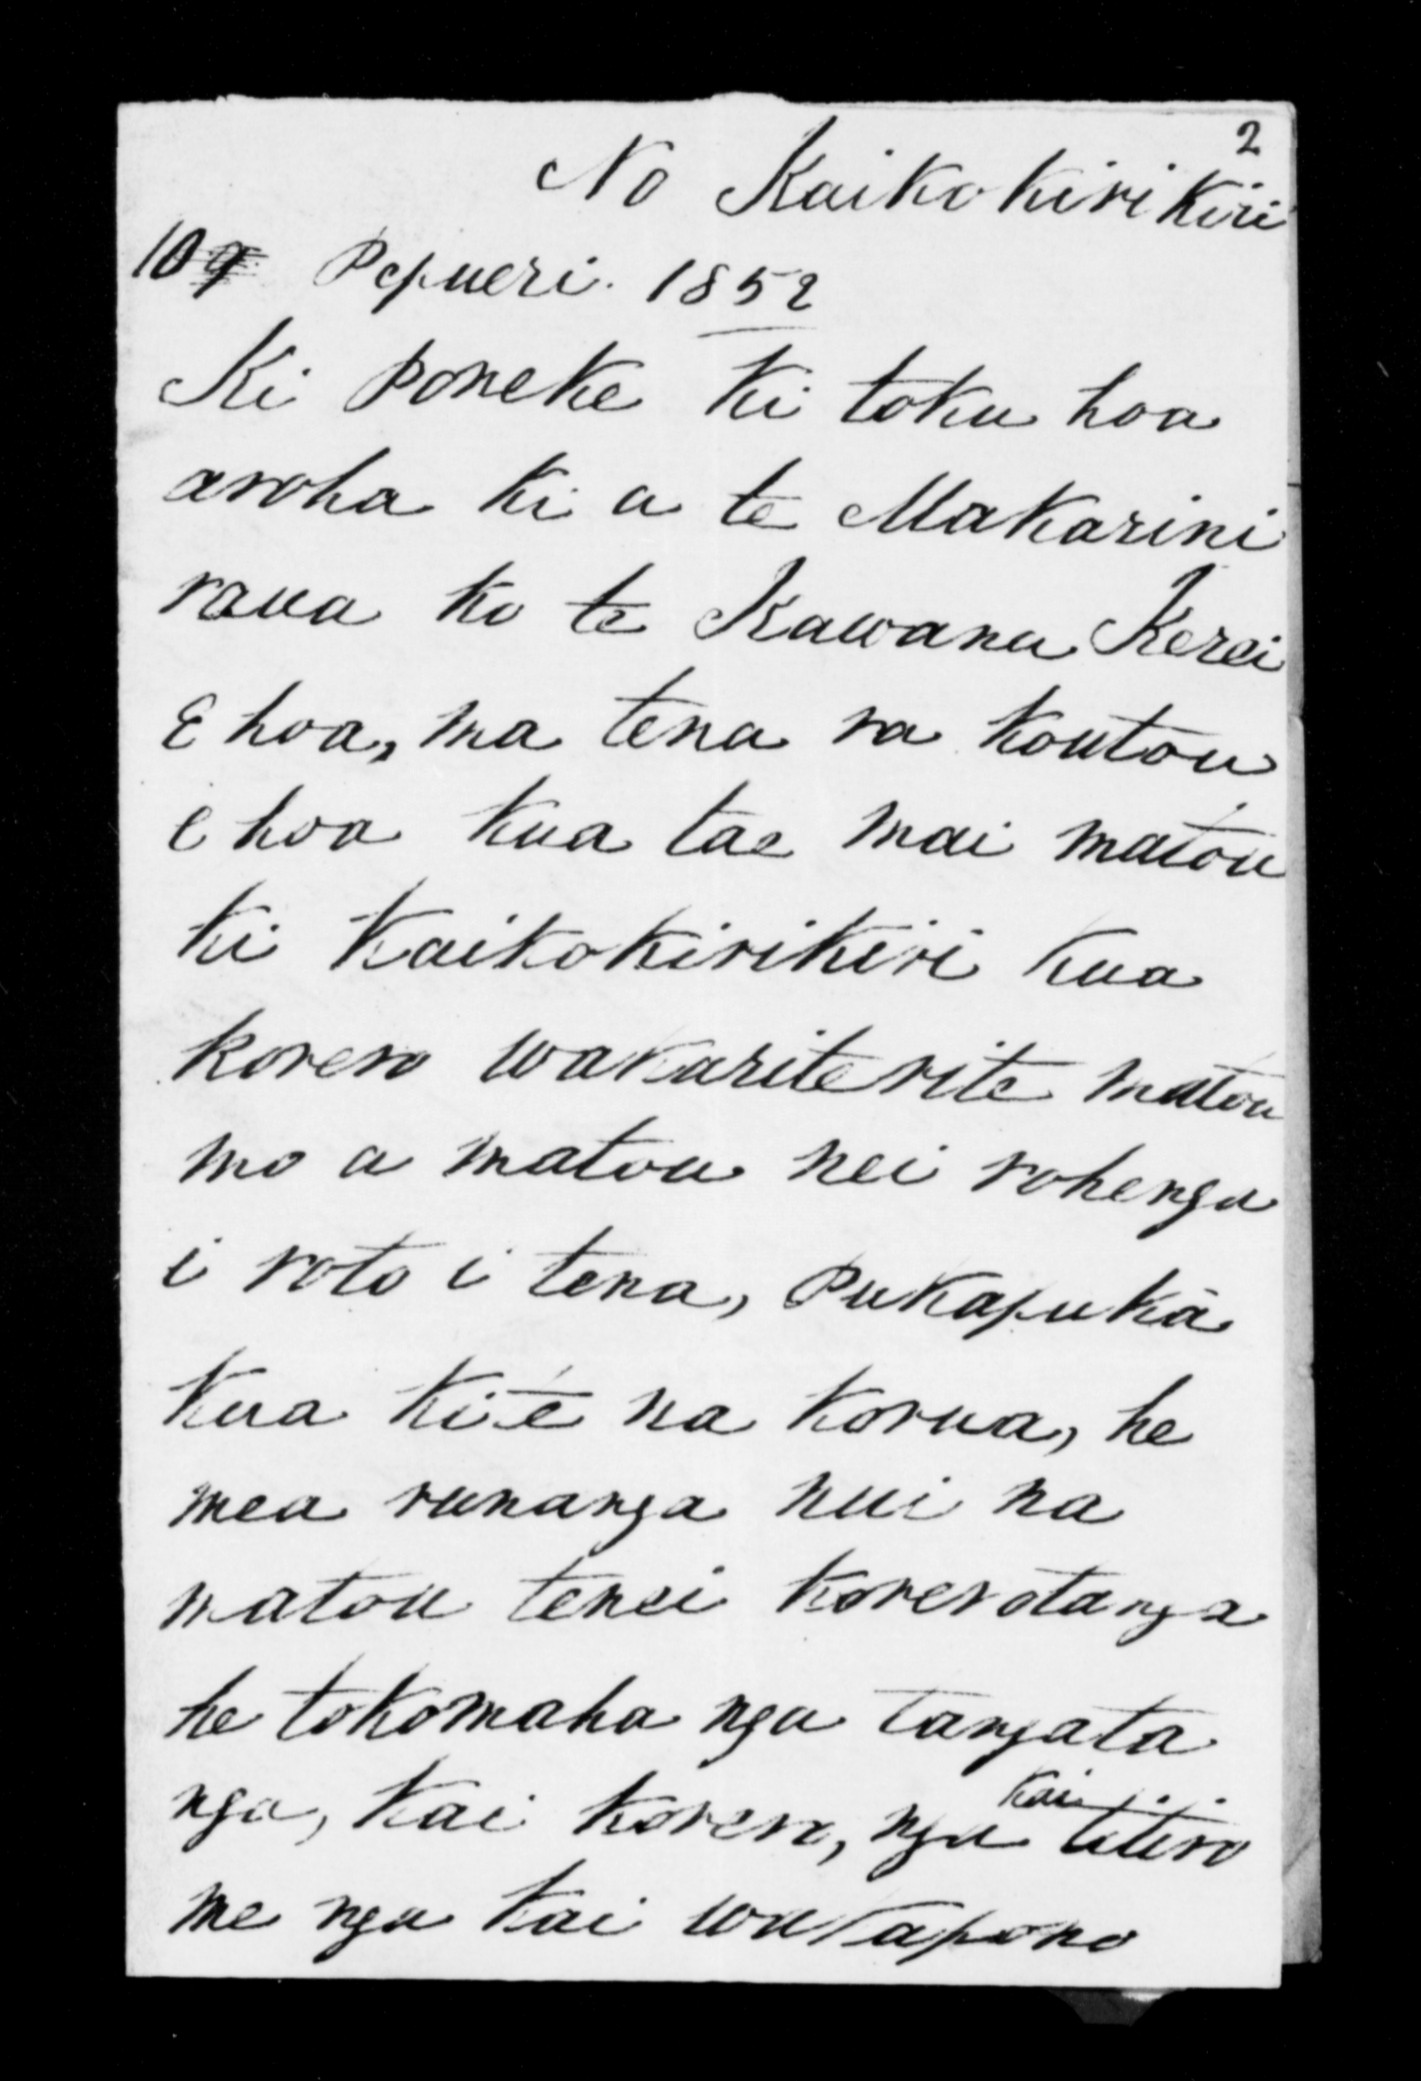 2
No Kaikokirikiri
10 9 Pepueri. 1852
Ki Poneke ki toku hoa
aroha ki a te Makarini
raua ko te Kawana Kerei
E hoa, ma tena ra koutou
e hoa kua tae mai matou
ki Kaikokirikiri kua
korero wakariterite matou
mo a matou nei rohenga
i roto i tena, Pukapuka
kua kite na korua, he
mea runanga nui na
matou tenei korerotanga
he tokomaha nga tangata
nga, kai korero, nga kai titiro
me nga kai wakapono